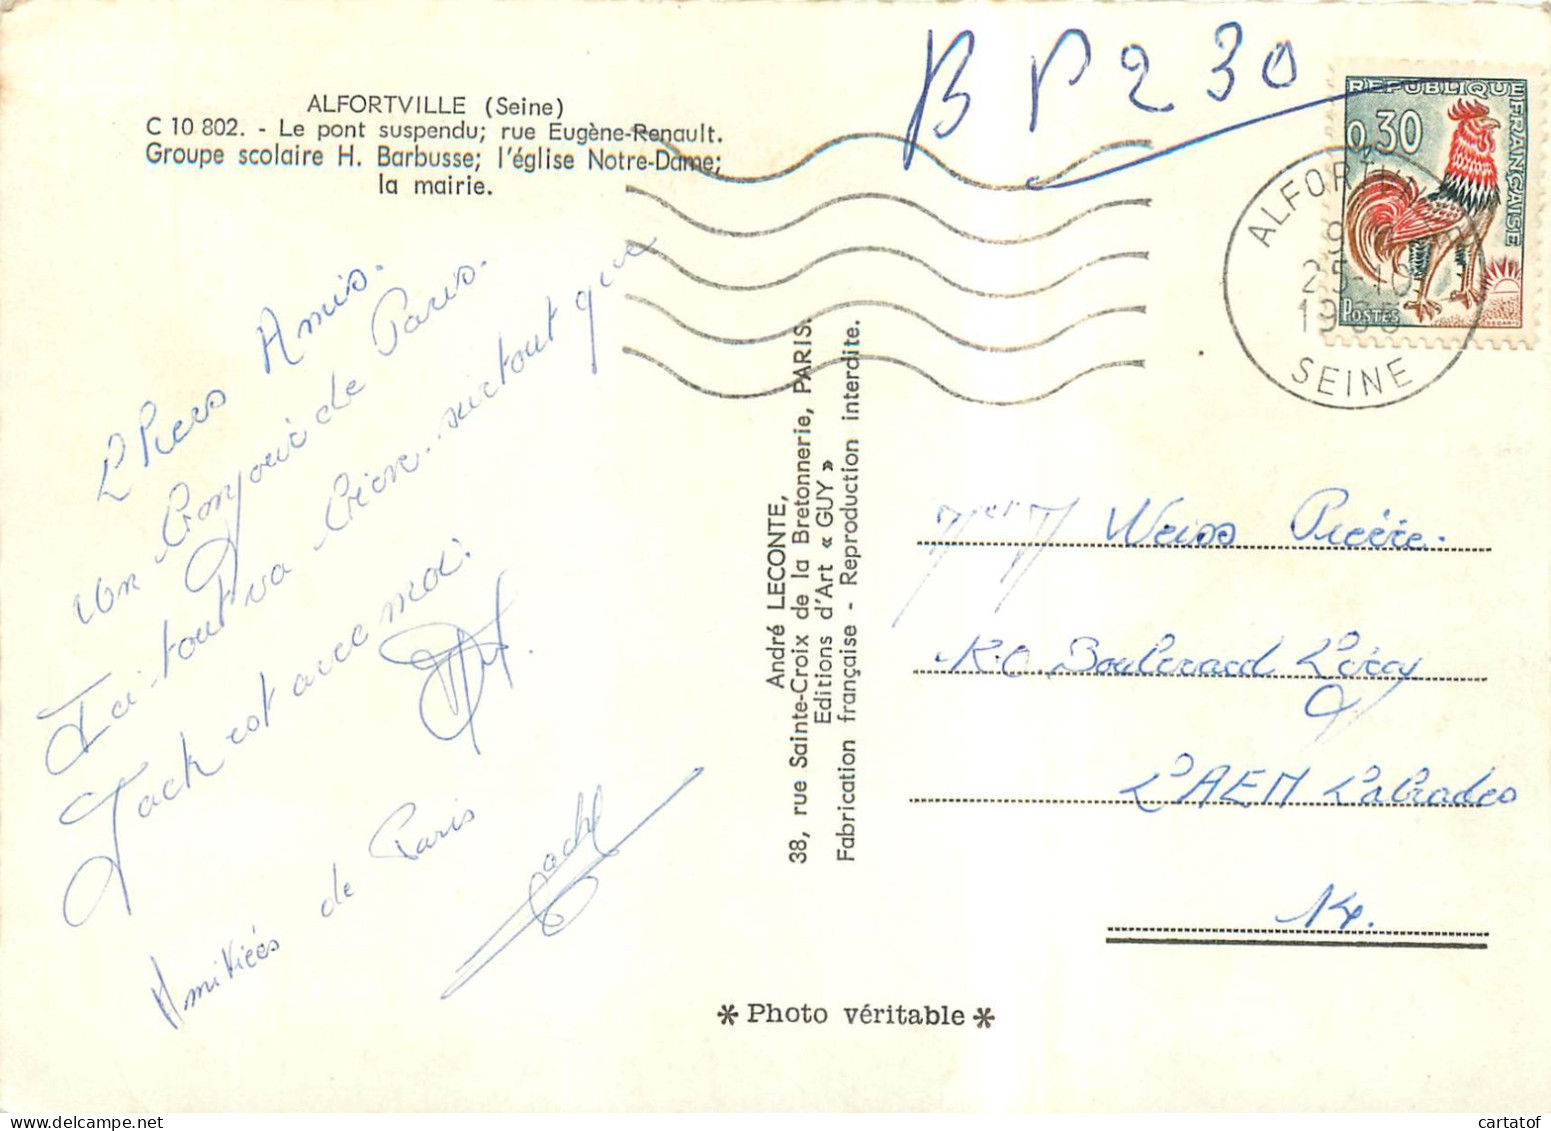 ALFORTVILLE (Seine)
C 10 802. - Le pont suspendu; rue Eugène-Renault.
Groupe scolaire H. Barbusse; l'église Notre-Dame;
la mairie.
BP 230
REPUBLIQUE FRANÇAISE
0,30
POSTES
ALFORTVILLE
9
25-10
1965
SEINE
Chers Amis.
Un Bonjour de Paris.
Ici tout va bien. surtout que
Jack est avec moi.
Amitiées de Paris
Jack
André LECONTE,
38, rue Sainte-Croix de la Bretonnerie, PARIS.
Editions d'Art « GUY »
Fabrication française - Reproduction interdite.
Weiss Pierre.
Boulevard Lércy
CAEN
14.
* Photo véritable *
cartatof